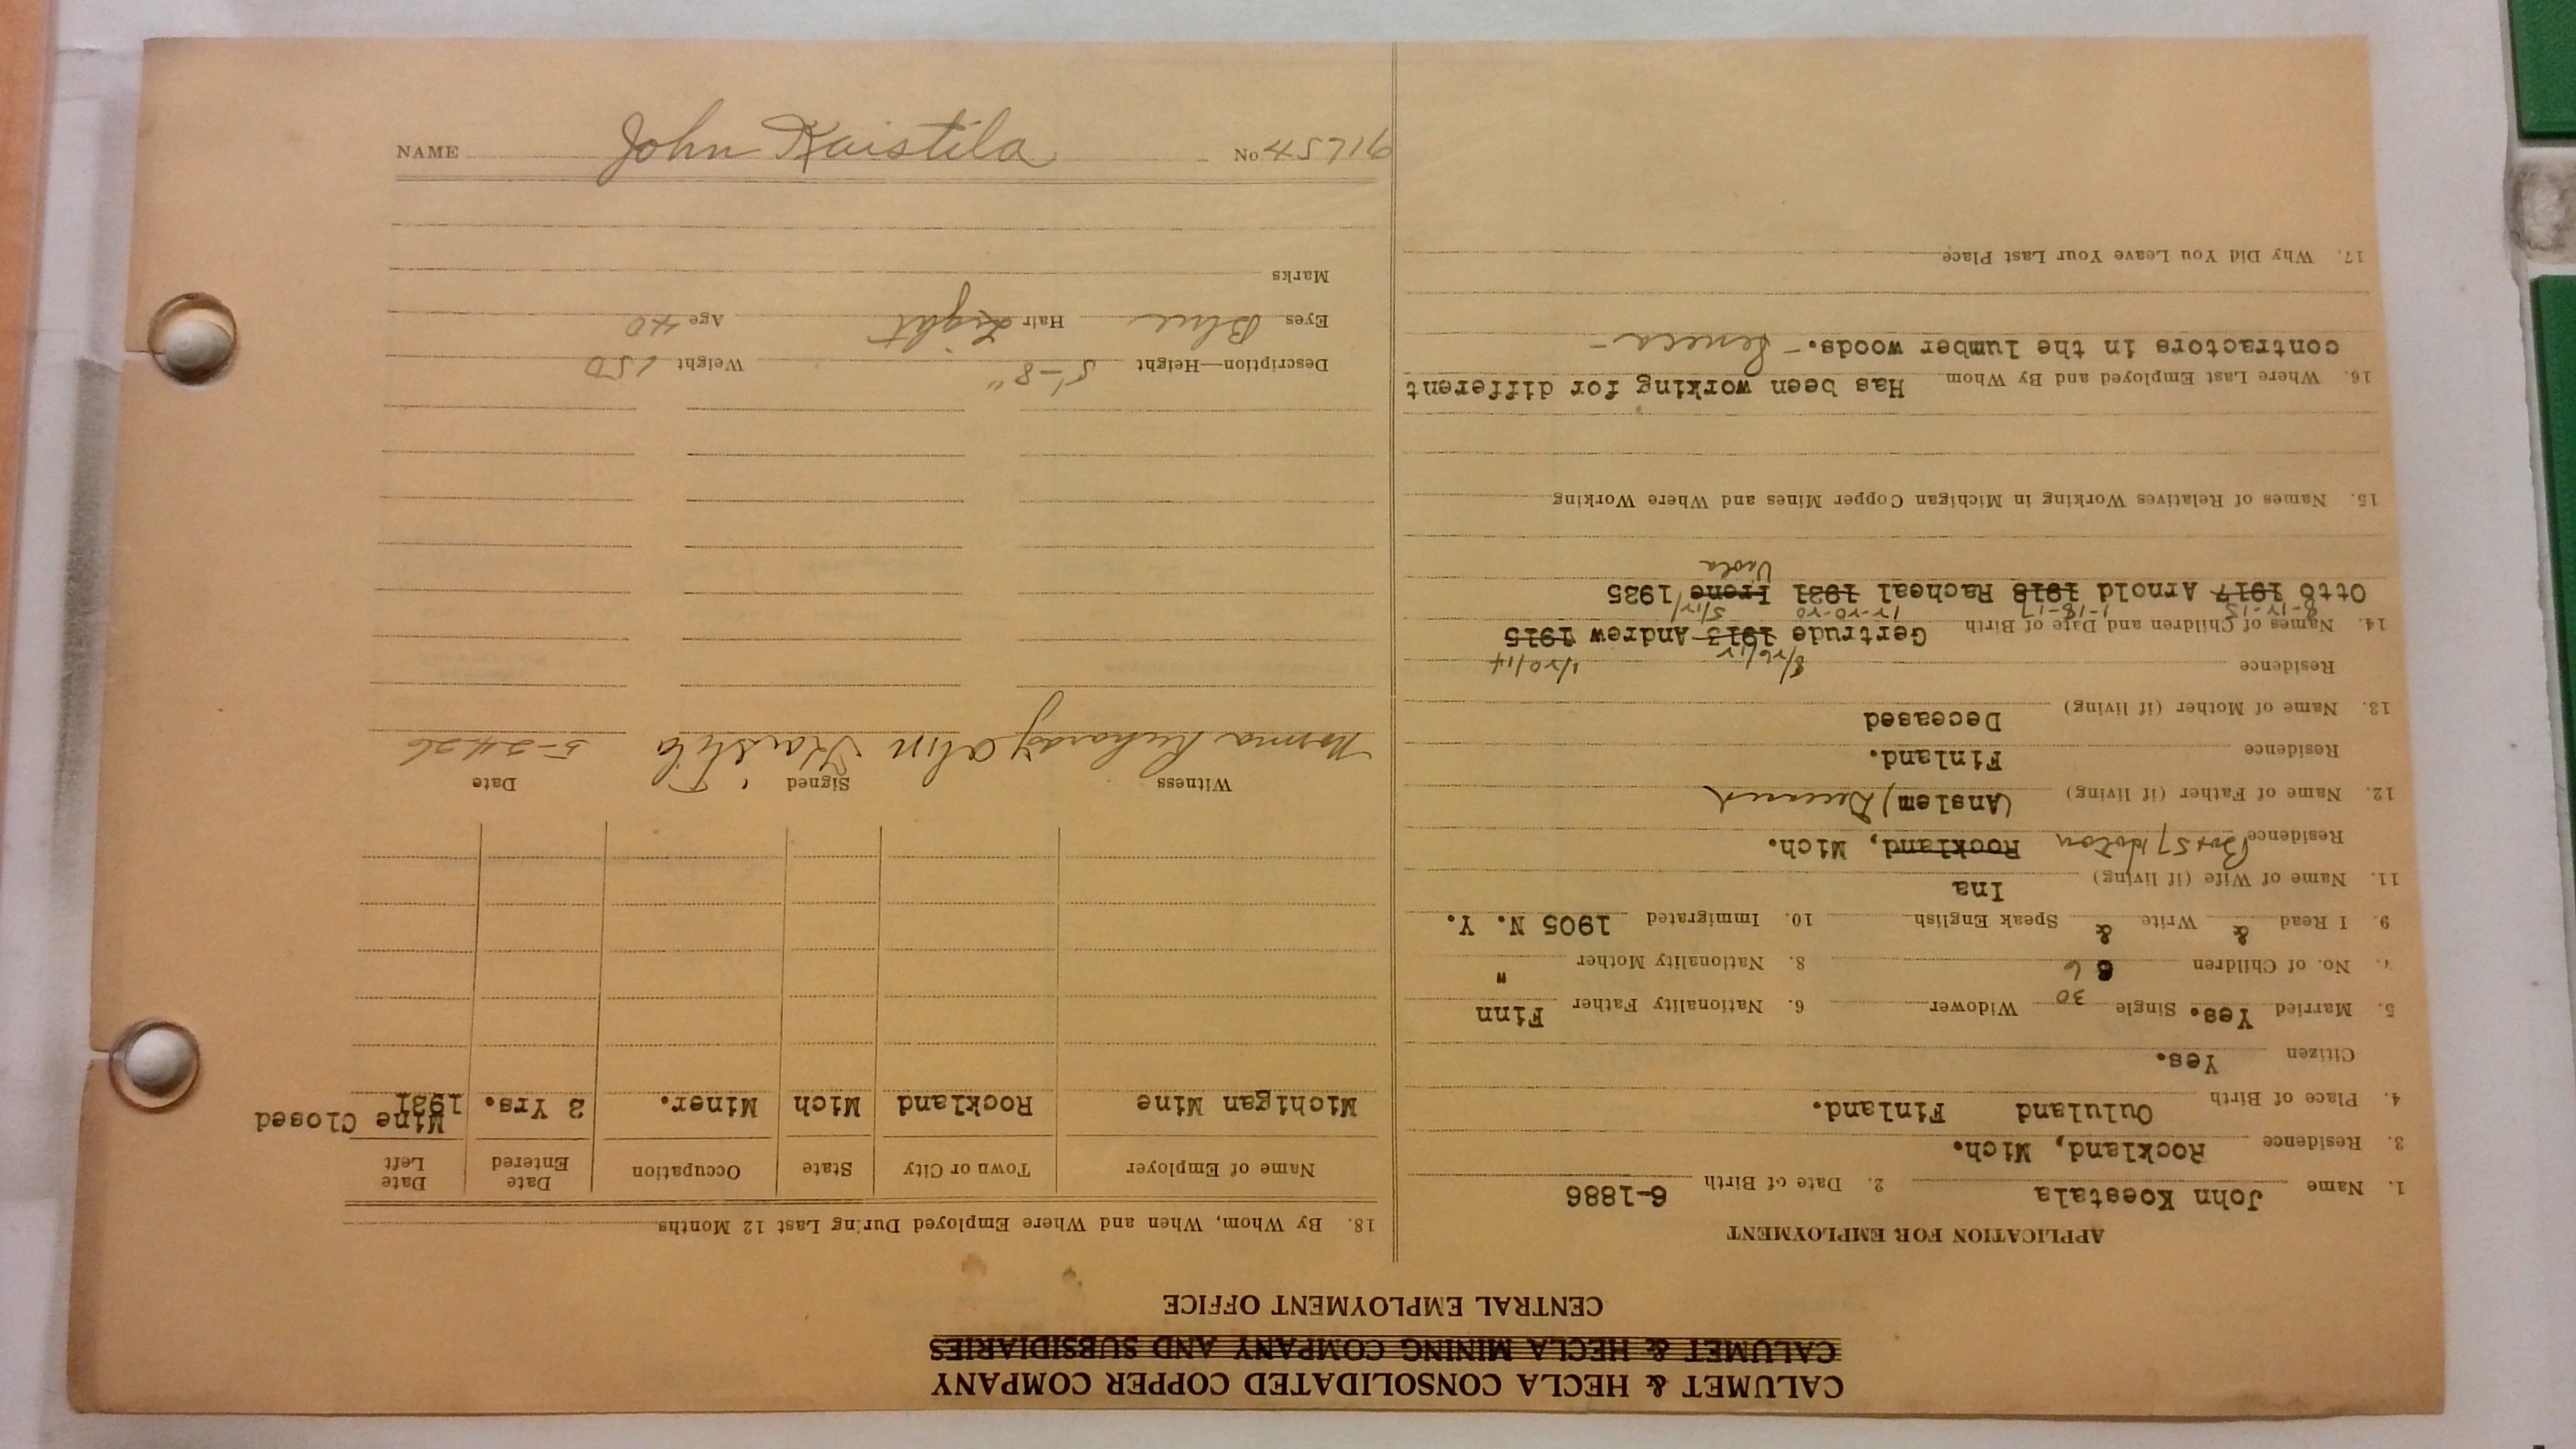 CALUMET & HECLA CONSOLIDATED COPPER COMPANY
CALUMET & HECLA MINING COMPANY AND SUBSIDIARIES
CENTRAL EMPLOYMENT OFFICE
APPLICATION FOR EMPLOYMENT
1. Name John Koestala 2. Date of Birth 6-1886
3. Residence Rockland, Mich.
4. Place of Birth Oululand Finland.
Citizen Yes.
5. Married Yes. Single 30 Widower 6. Nationality Father Finn
7. No. of Children 6 8. Nationality Mother "
9. I Read & Write & Speak English 10. Immigrated 1905 N. Y.
11. Name of Wife (if living) Ina
Residence Box 57 Rockland, Mich.
12. Name of Father (if living) (Anslem) Deceased
Residence Finland.
13. Name of Mother (if living) Deceased
Residence
8/26/12 1/20/14
14. Names of Children and Date of Birth Gertrude 1913 Andrew 1915
8-12-15 1-18-17 12-20-20 5/12/
Otto 1917 Arnold 1918 Racheal 1921 Irene 1925
Viola
15. Names of Relatives Working in Michigan Copper Mines and Where Working
16. Where Last Employed and By Whom Has been working for different
contractors in the lumber woods. - Seneca -
17. Why Did You Leave Your Last Place
18. By Whom, When and Where Employed During Last 12 Months
Name of Employer Town or City State Occupation Date Entered Date Left
Michigan Mine Rockland Mich Miner. 2 Yrs. 1921
Mine Closed
Witness Signed Date
Norma Kaistila 5-24-26
Description—Height 5'-8" Weight 150
Eyes Blue Hair Light Age 40
Marks
NAME John Kaistila No 45716